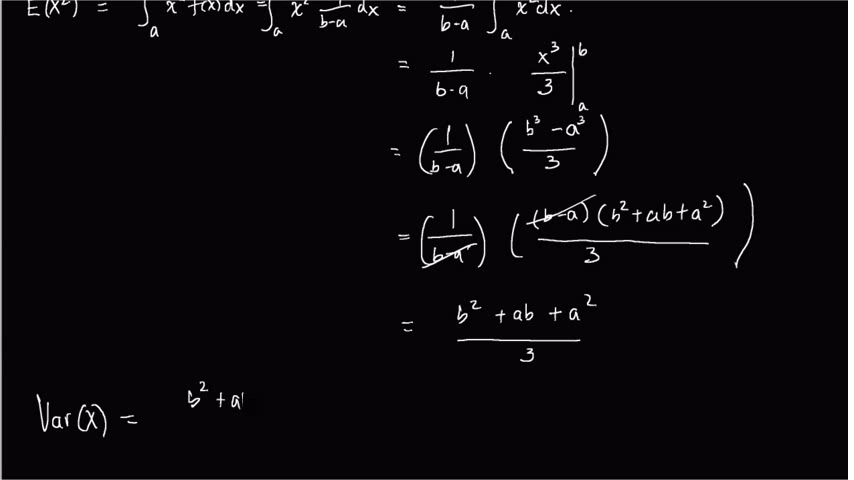 E(X²) = ∫ₐ x² f(x) dx = ∫ₐ x² 1/(b-a) dx = 1/(b-a) ∫ₐ x² dx.
= 1/(b-a) · x³/3 |ₐᵇ
= (1/(b-a)) ((b³ - a³)/3)
= (1/(b-a)) ((b-a)(b² + ab + a²)/3)
= (b² + ab + a²)/3
Var(X) = b² + a